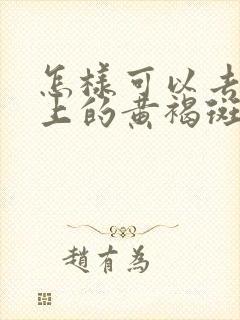 怎样可以去
上的黄褐斑
趙有為